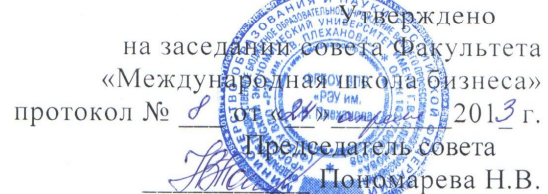 Утверждено
на заседании совета Факультета
«Международная школа бизнеса»
протокол № 8 от «24» апреля 2013 г.
Председатель совета
Пономарева Н.В.